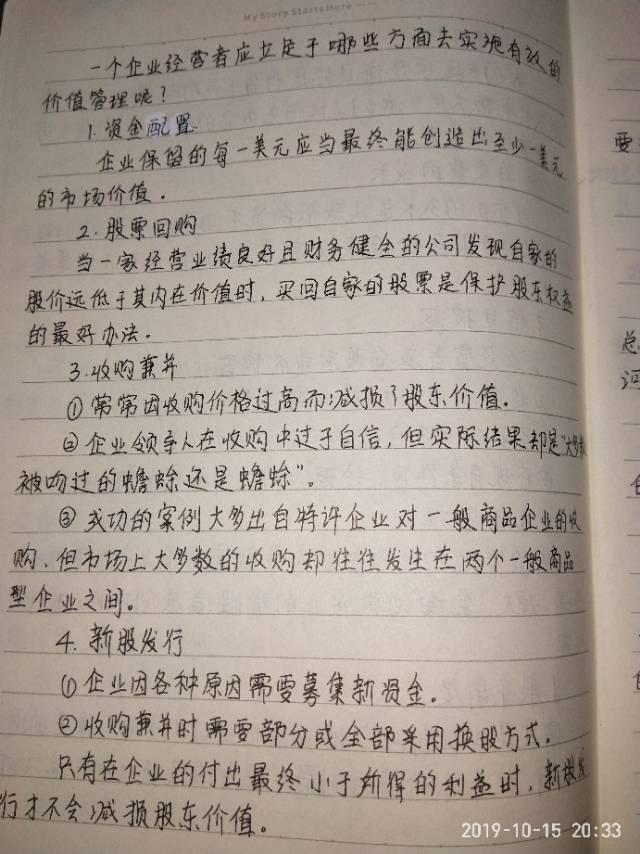 My Story Starts Here ......
一个企业经营者应立足于哪些方面去实现有效的
价值管理呢？
1. 资金配置.
企业保留的每一美元应当最终能创造出至少一美元
的市场价值。
2. 股票回购
当一家经营业绩良好且财务健全的公司发现自家的
股价远低于其内在价值时，买回自家的股票是保护股东权益
的最好办法。
3. 收购兼并
① 常常因收购价格过高而减损了股东价值。
② 企业领导人在收购中过于自信，但实际结果却是“大多数
被吻过的蟾蜍还是蟾蜍”。
③ 成功的案例大多出自特许企业对一般商品企业的收
购，但市场上大多数的收购却往往发生在两个一般商品
型企业之间。
4. 新股发行
① 企业因各种原因需要募集新资金。
② 收购兼并时需要部分或全部采用换股方式。
只有在企业的付出最终小于所得的利益时，新股发
行才不会减损股东价值。
要
总
2019-10-15 20:33